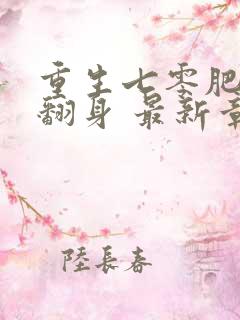 重生七零肥
翻身 最新章
陸長春